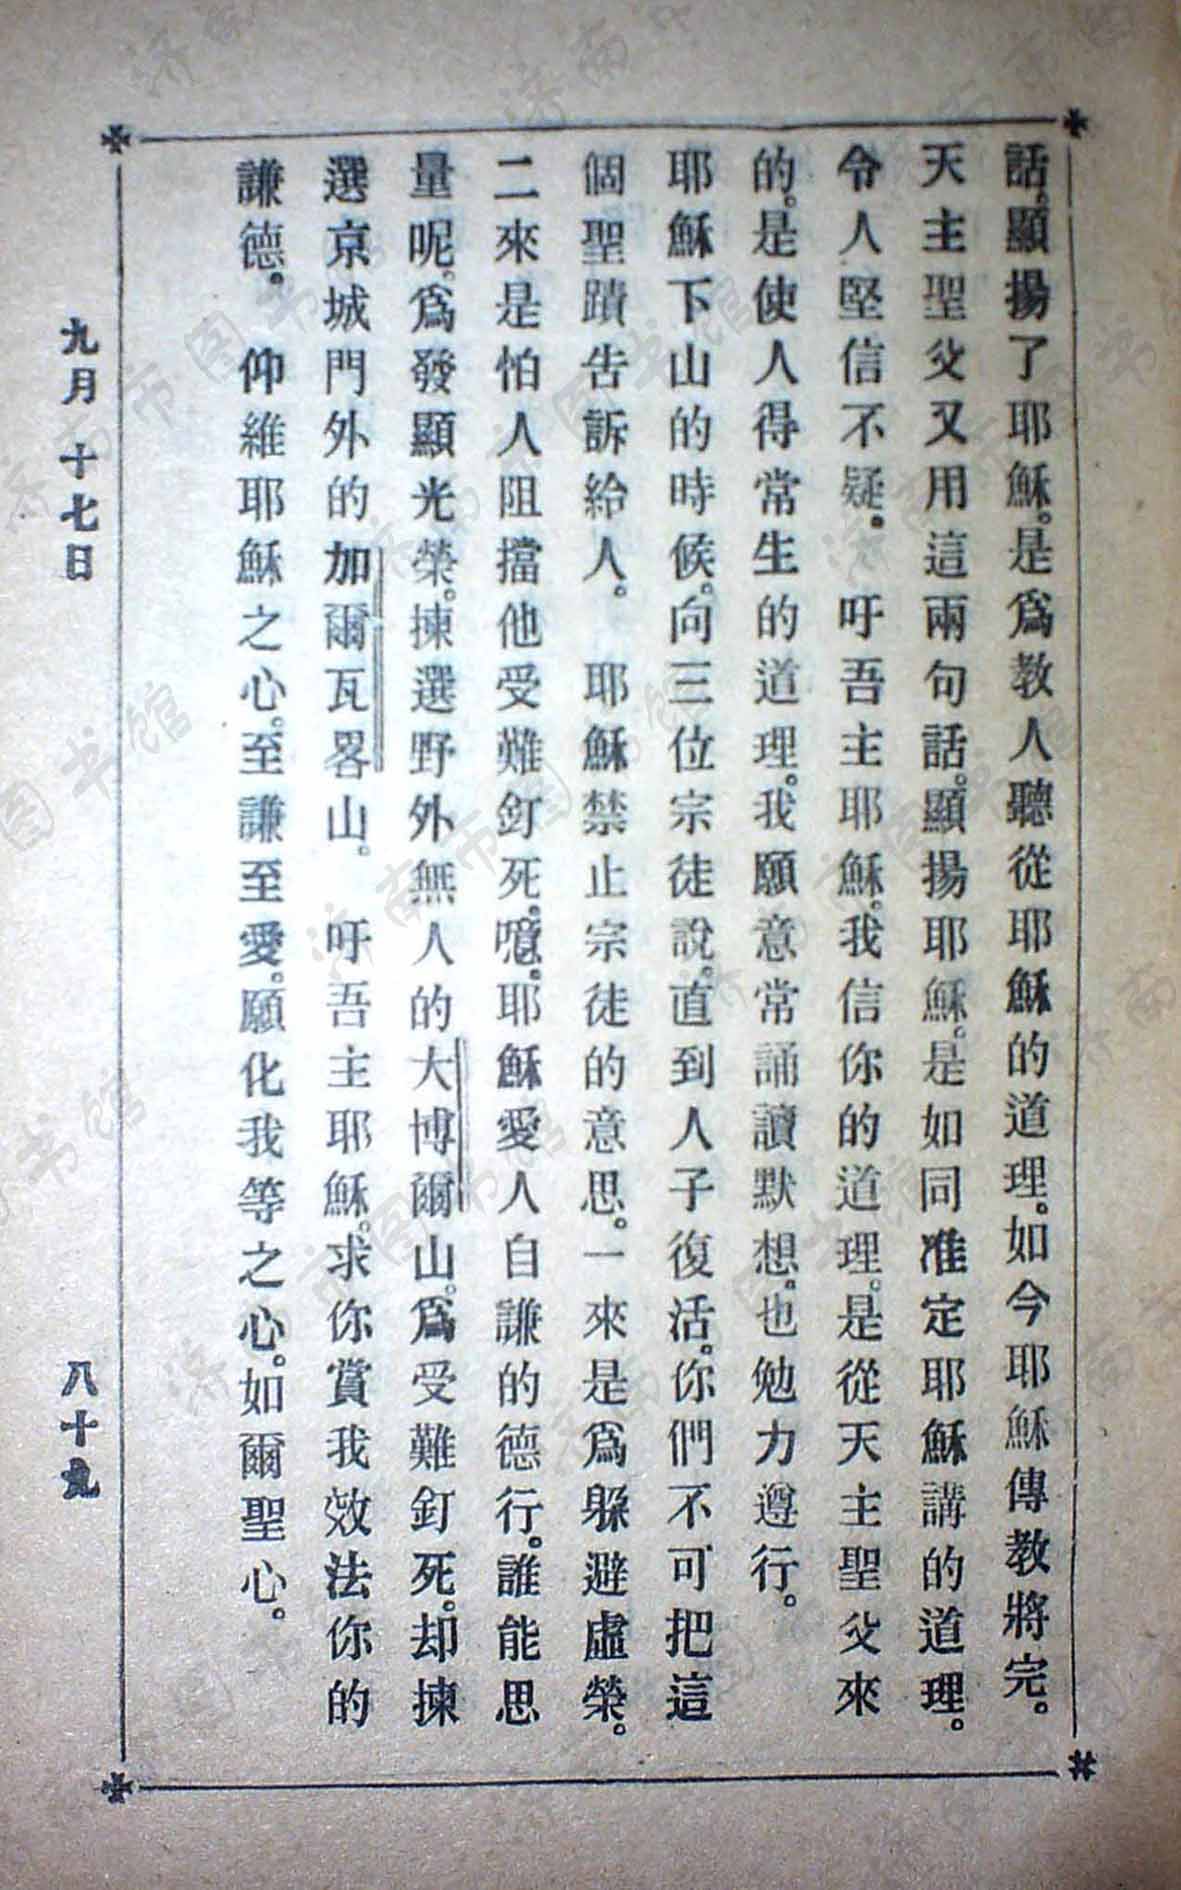 話。顯揚了耶穌。是爲教人聽從耶穌的道理。如今耶穌傳教將完。
天主聖父又用這兩句話。顯揚耶穌。是如同准定耶穌講的道理。
令人堅信不疑。 吁吾主耶穌。我信你的道理。是從天主聖父來
的。是使人得常生的道理。我願意常誦讀默想。也勉力遵行。
耶穌下山的時候。向三位宗徒說。直到人子復活。你們不可把這
個聖蹟告訴給人。 耶穌禁止宗徒的意思。一來是爲躲避虛榮。
二來是怕人阻擋他受難釘死。噫。耶穌愛人自謙的德行。誰能思
量呢。爲發顯光榮。揀選野外無人的大博爾山。爲受難釘死。却揀
選京城門外的加爾瓦畧山。 吁吾主耶穌。求你賞我效法你的
謙德。 仰維耶穌之心。至謙至愛。願化我等之心。如爾聖心。
九月十七日
八十九
济南市图书馆